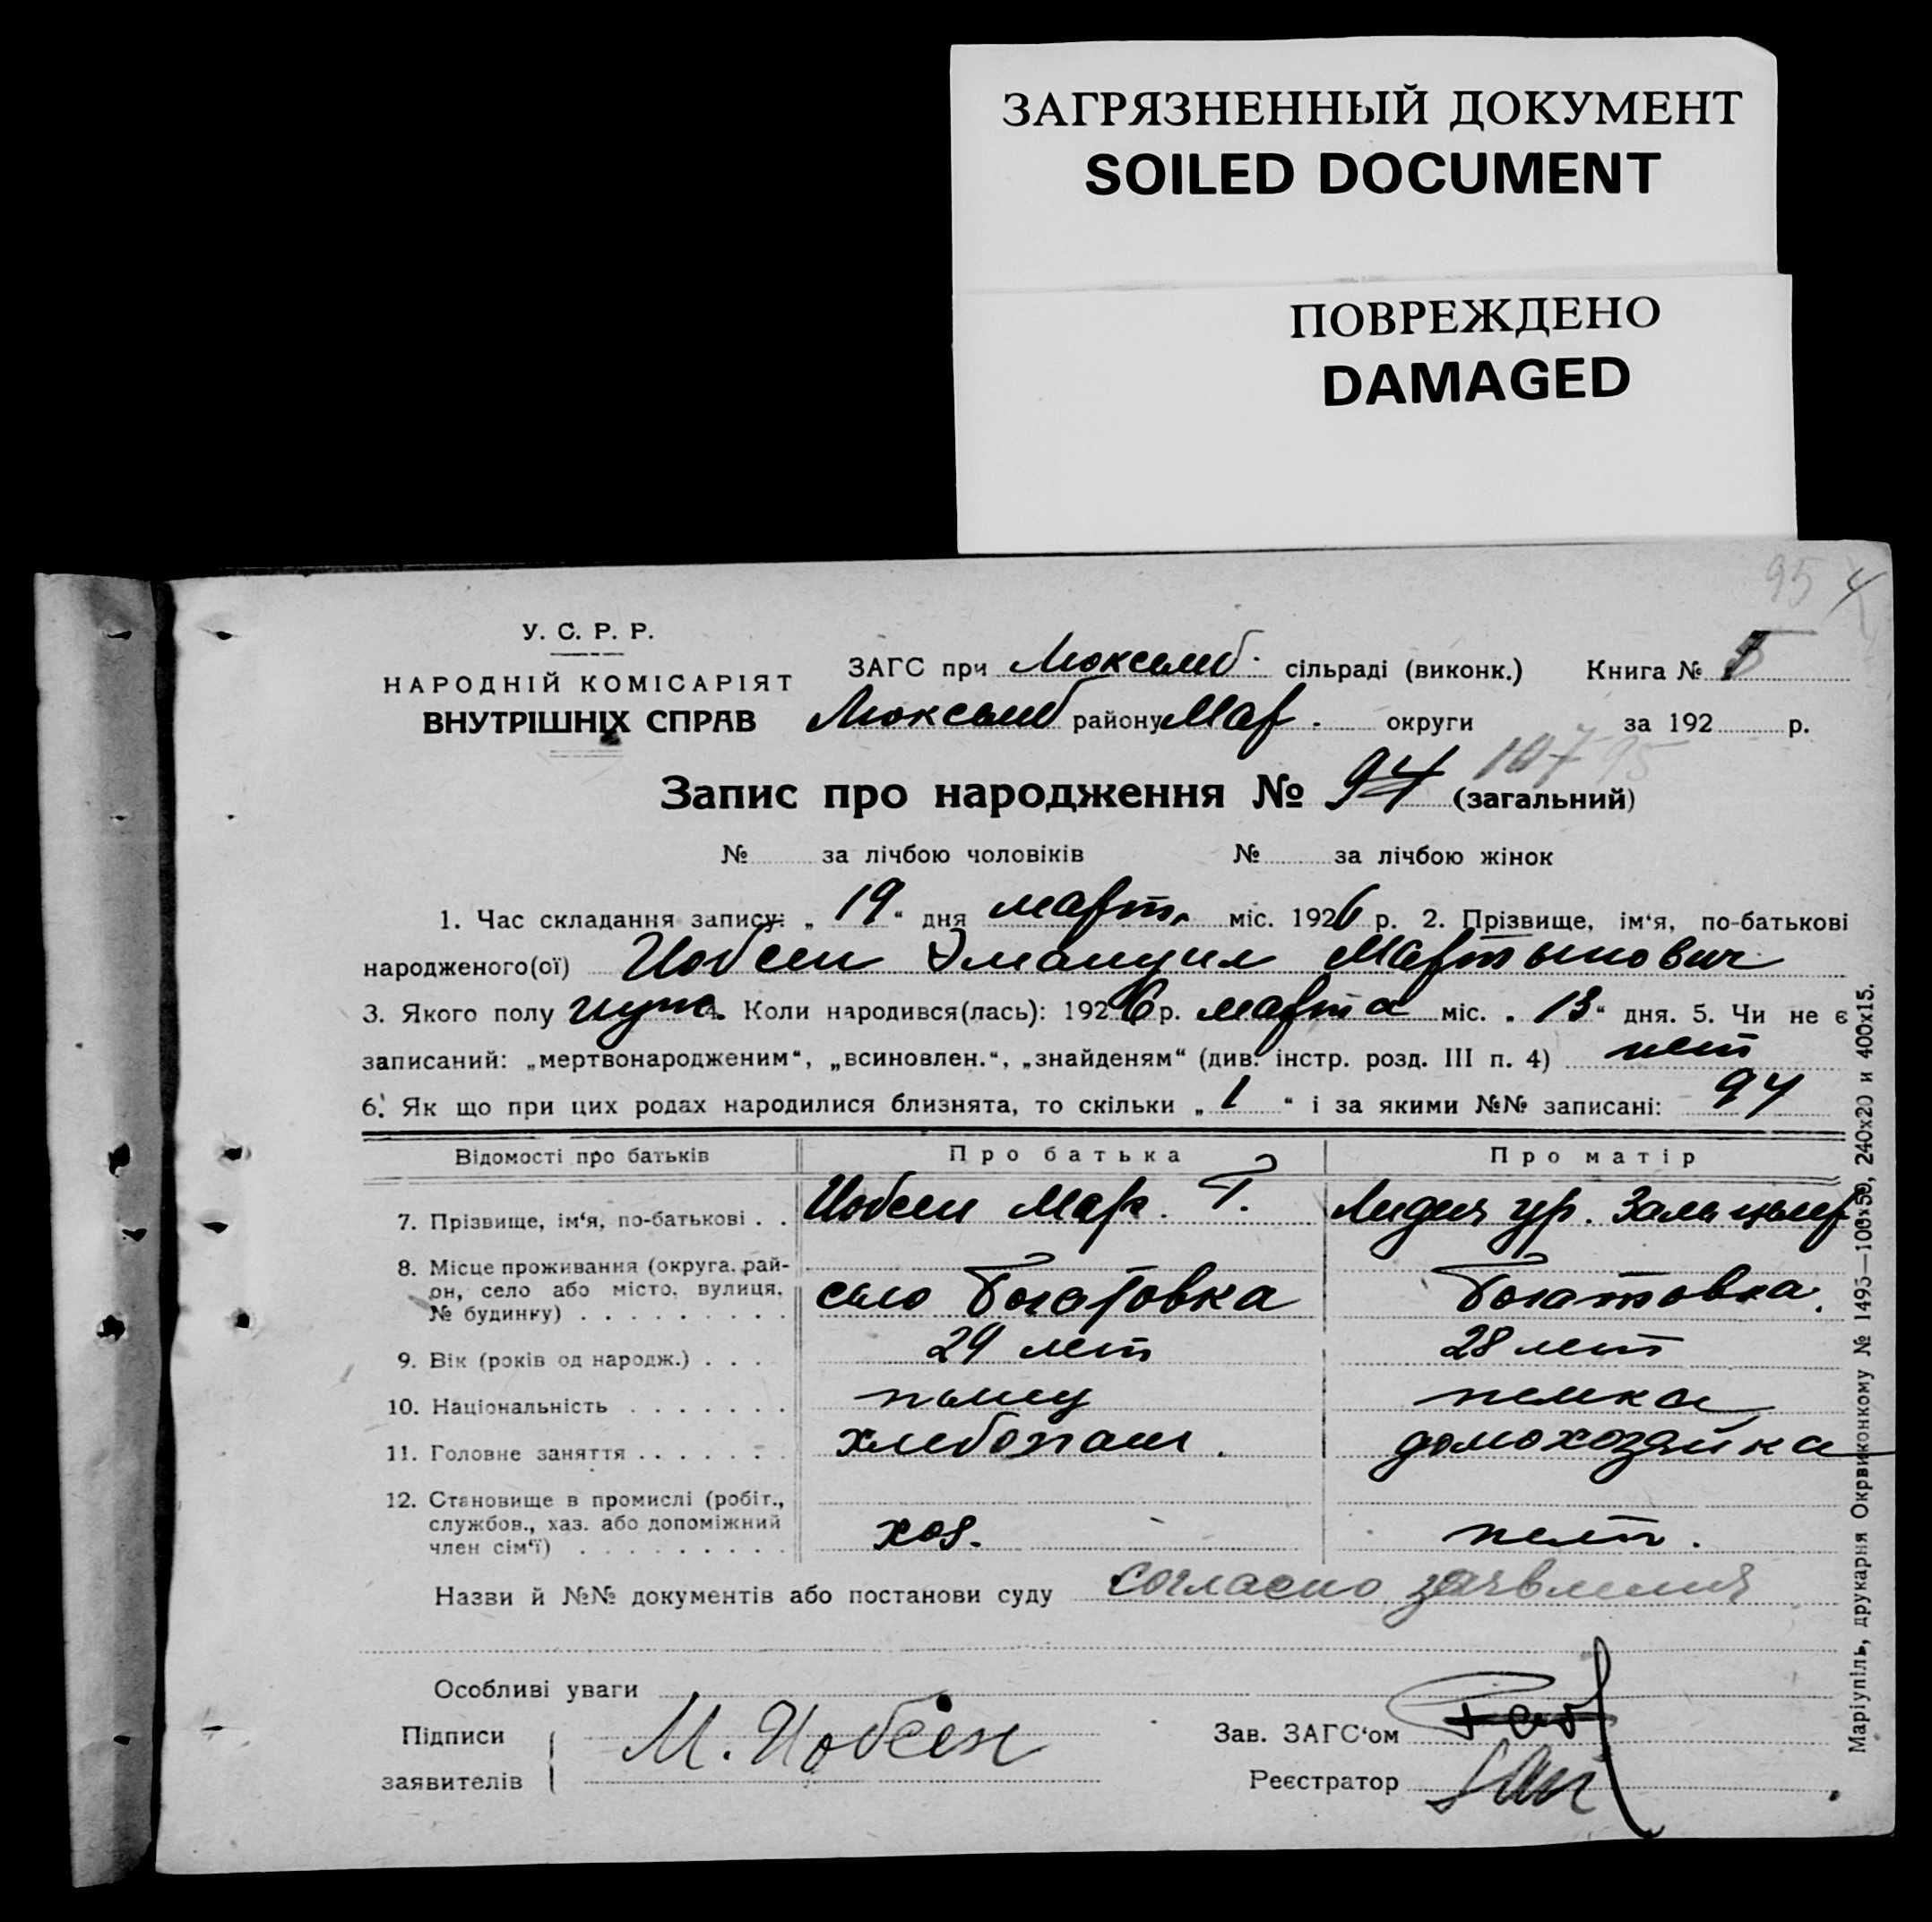 ЗАГРЯЗНЕННЫЙ ДОКУМЕНТ
SOILED DOCUMENT
ПОВРЕЖДЕНО
DAMAGED
95
У. С. Р. Р.
НАРОДНІЙ КОМІСАРІЯТ
ВНУТРІШНІХ СПРАВ
ЗАГС при Люксемб. сільраді (виконк.) Книга №
Люксемб району Мар. округи за 192 р.
107 95
Запис про народження № 94 (загальний)
№ за лічбою чоловіків № за лічбою жінок
1. Час складання запису: „ 19 “ дня март. міс. 1926 р. 2. Прізвище, ім‘я, по-батькові
народженого(ої) Иобсен Эмануил Мартынович
3. Якого полу муж. Коли народився(лась): 1926 р. марта міс. „ 13 “ дня. 5. Чи не є
записаний: „мертвонародженим“, „всиновлен.“, „знайденям“ (див. інстр. розд. III п. 4) нет
6. Як що при цих родах народилися близнята, то скільки „ 1 “ і за якими №№ записані: 94
Відомості про батьків Про батька Про матір
7. Прізвище, ім‘я, по-батькові . . Иобсен Мар. Г. Лидия ур.
8. Місце проживання (округа, рай-
он, село або місто, вулиця, село Богатовка Богатовка.
№ будинку) . . . . . . . . .
9. Вік (років од народж.) . . . 29 лет 28 лет
10. Національність . . . . . . . немец немка
11. Головне заняття . . . . . . . хлебопаш. домохозяйка
12. Становище в промислі (робіт.,
службов., хаз. або допоміжний
член сім‘ї) . . . . . . . . . хоз. нет.
Назви й №№ документів або постанови суду согласно заявления
Особливі уваги
Підписи
заявителів М. Иобсен
Зав. ЗАГС‘ом
Реєстратор
Маріупіль, друкарня Окрвиконкому № 1495—100х50, 240х20 и 400х15.